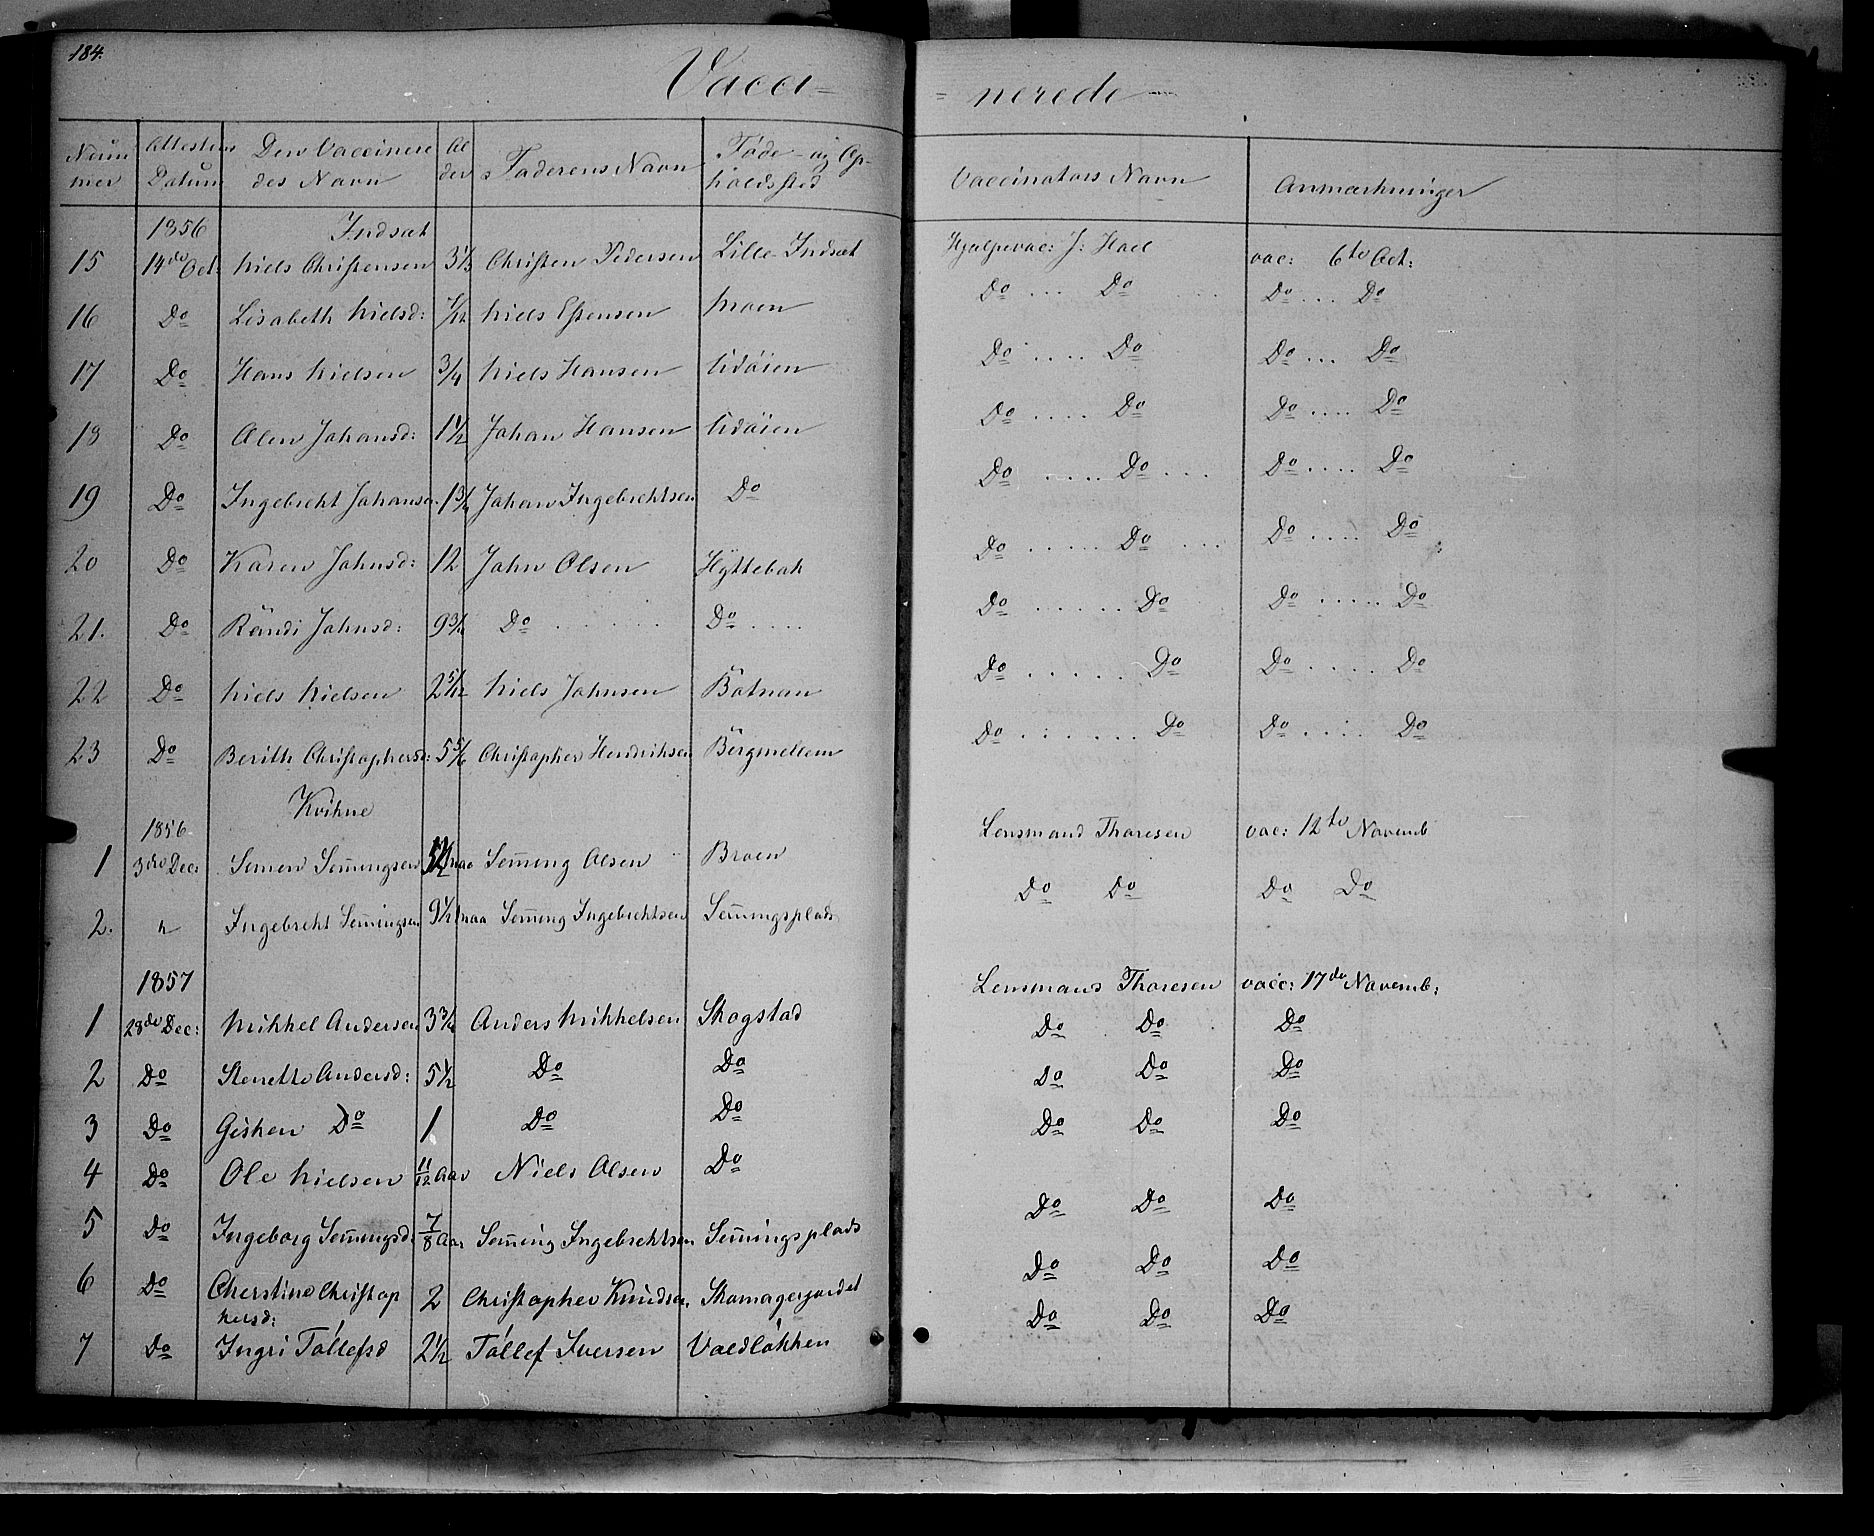 184.
Vacci= =nerede
Num mer | Attestens Datum | Den Vaccinere des Navn | Al der | Faderens Navn | Føde- og Op- holdssted | Vaccinators Navn | Anmærkninger
1856 Indsæt
15 | 14de Oct: | Niels Christensen | 3 1/3 | Christen Pedersen | Lille-Indsæt | Hjælpevac: J: Hoel | vac: 6te Oct:
16 | Do | Lisabeth Nielsd: | 7/12 | Niels Estensen | Moen | Do ... Do ... | Do ... Do
17 | Do | Hans Nielsen | 3/4 | Niels Hansen | Udøien | Do .... Do | Do ... Do
18 | Do | Olen Johansd: | 1 1/2 | Johan Hansen | Udøien | Do .... Do | Do .... Do
19 | Do | Ingebreht Johansen | 1 3/4 | Johan Ingebrehtsen | Do | Do .... Do ... | Do .... Do
20 | Do | Karen Johnsd: | 12 | John Olsen | Hyttebak | Do ..... Do ... | Do .... Do
21. | Do | Rändi Johnsd: | 9 3/4 | Do ...... | Do .... | Do ..... Do | Do ..... Do
22 | Do | Niels Nielsen | 2 5/12 | Niels Johnsen | Botnan | Do ..... Do | Do .... Do
23 | Do | Berith Christophersd: | 5 5/6 | Christopher Hendriksen | Bergmellem | Do ...... Do | Do .... Do
Kvikne
1856
1 | 3die Dec: | Simen Semingsen | | Seming Olsen | Broen | Lensmand Thoresen | vac: 12te Novemb
2. | " | Ingebreht Semingsen | 9 1/2 maa | Seming Ingebrehtsen | Semingsplads | Do Do | Do Do
1857
1 | 28de Dec: | Mikkel Andersen | 3 3/4 | Anders Mikkelsen | Skogstad | Lensmand Thoresen | vacc: 17de Novemb:
2 | Do | Stenette Andersd: | 5 1/2 | Do | Do | Do Do | Do
3 | Do | Gisken Do | 1 | Do | Do | Do Do | Do
4 | Do | Ole Nielsen | 11/12 Aar | Niels Olsen | Do | Do Do | Do
5 | Do | Ingeborg Semingsd: | 7/8 Aar | Seming Ingebrehtsen | Semingsplads | Do Do | Do
6 | Do | Cherstine Christop hersd: | 2 | Christopher Knudsen | Skomagerjordet | Do Do | Do
7 | Do | Ingri Tollefsd | 2 1/2 | Tollef Iversen | Voldløkken | Do Do | Do